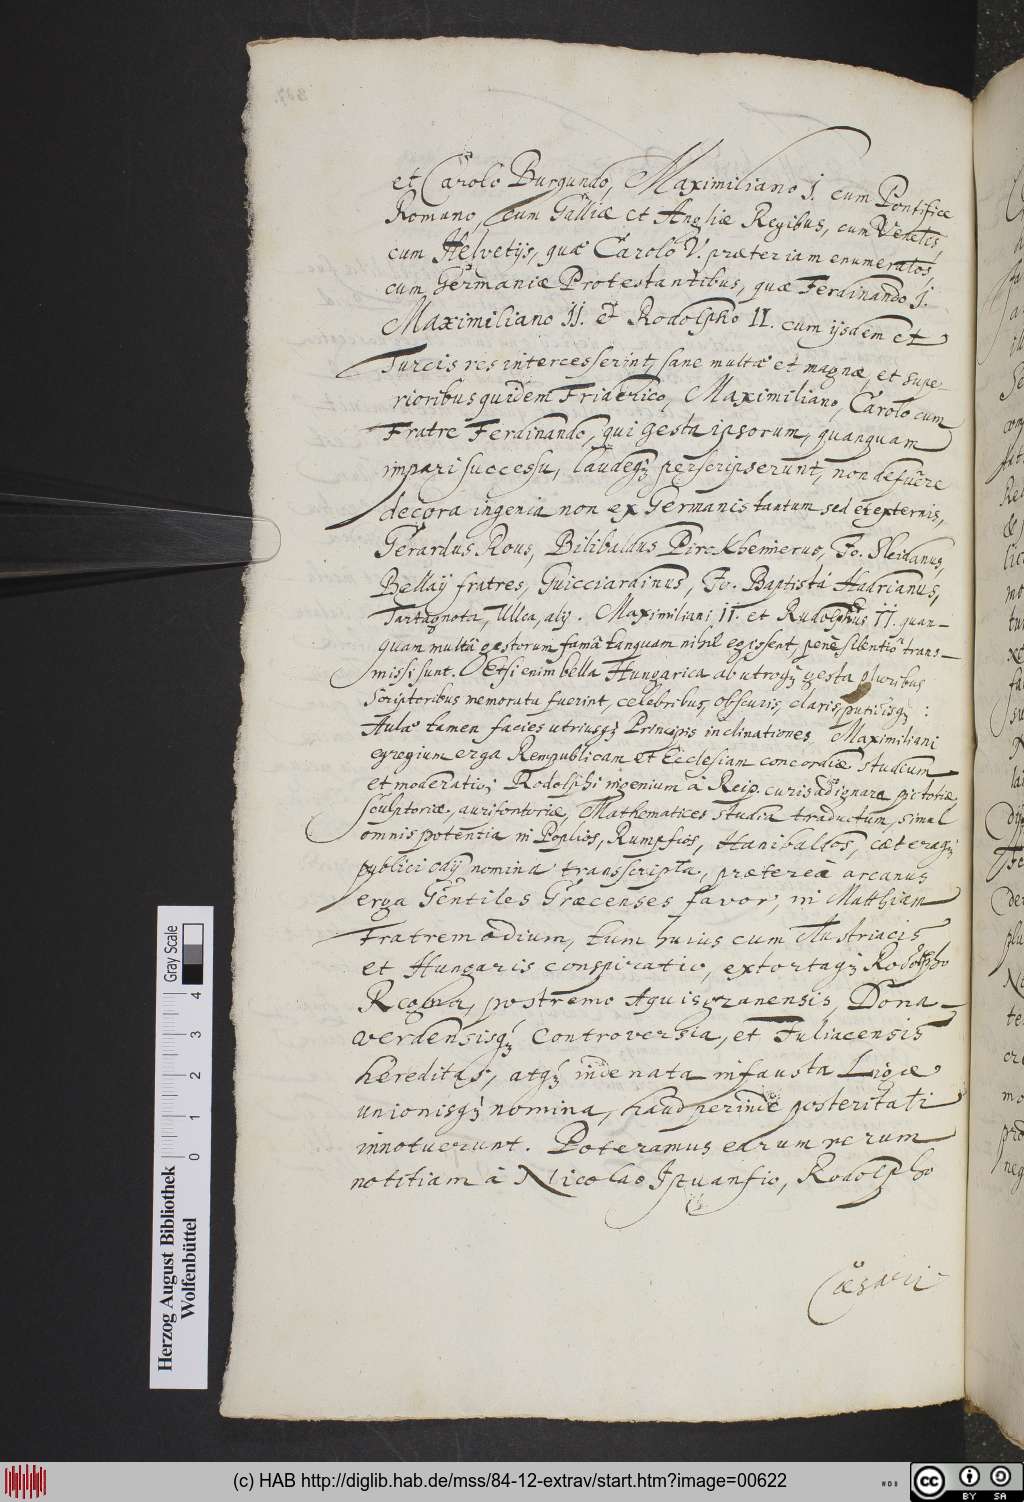 et Carolo Burgundo, Maximiliano I. cum Pontifice
Romano, cum Galliæ et Angliæ Regibus, cum Venetis,
cum Helvetijs, quæ Carolo V. præter iam enumeratos,
cum Germaniæ Protestantibus, quæ Ferdinando I.
Maximiliano II. et Rodolpho II. cum ijsdem et
Turcis res intercesserint, sane multæ et magnæ, et supe-
rioribus quidem Friderico, Maximiliano, Carolo cum
Fratre Ferdinando, qui gesta ipsorum, quanquam
impari successu, laudeqȝ perscripserunt, non defuere
decora ingenia non ex Germanis tantum sed et externis,
Gerardus Rous, Bilibaldus Pirckhemerus, Jo. Sleidanus,
Bellaij fratres, Guicciardinus, Jo. Baptista Hadrianus,
Tartagnota, Ulloa, alij. Maximiliani II. et Rudolphus II. quan-
quam multâ gestorum famâ tanquam nihil egissent, penè silentio trans-
missi sunt. Etsi enim bella Hungarica ab utroqȝ gesta pluribus
scriptoribus memorata fuerint, celebribus, obscuris, claris, putidisqȝ :
Aulæ tamen facies utriusqȝ Principis inclinationes Maximiliani
egregium erga Rempublicam et Ecclesiam concordiæ studium
et moderatio; Rodolphi ingenium â Reip. curis ad ignara pictoriæ,
sculptoriæ, aurifontoriæ, Mathematices studia traductum, simul
omnis potentia in Poplios, Rumpfios, Haniballos, cæteraqȝ
publici odij nomina transscripta, præterea arcanus
erga Gentiles Græcenses favor, in Matthiam
Fratrem odium, tum huius cum Austriacis
et Hungaris conspiratio, extortaqȝ Rodolpho
Regna, postremo Aquisgranensis, Dona-
verdensisqȝ controversia, et Juliacensis
hereditas, atqȝ inde nata infausta Ligæ
unionisqȝ nomina, haud perinde posteritati
innotuerunt. Poteramus earum rerum
notitiam â Nicolao Istuanfio, Rodolpho
Cæsari
Herzog August Bibliothek
Wolfenbüttel
0 1 2 3 4
Gray Scale
(c) HAB http://diglib.hab.de/mss/84-12-extrav/start.htm?image=00622
cc BY SA